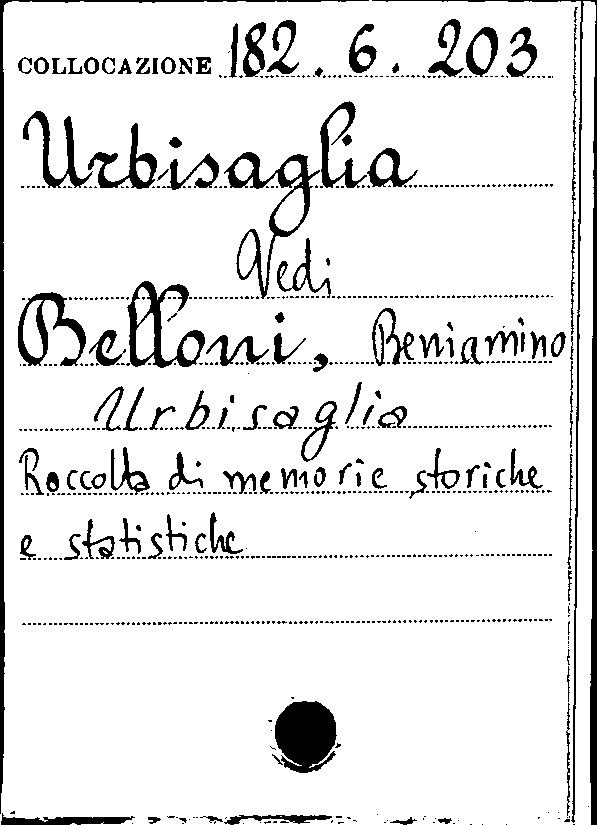 COLLOCAZIONE 182.6.203
Urbisaglia
Vedi
Belloni, Beniamino
Urbisaglia
Raccolta di memorie storiche
e statistiche